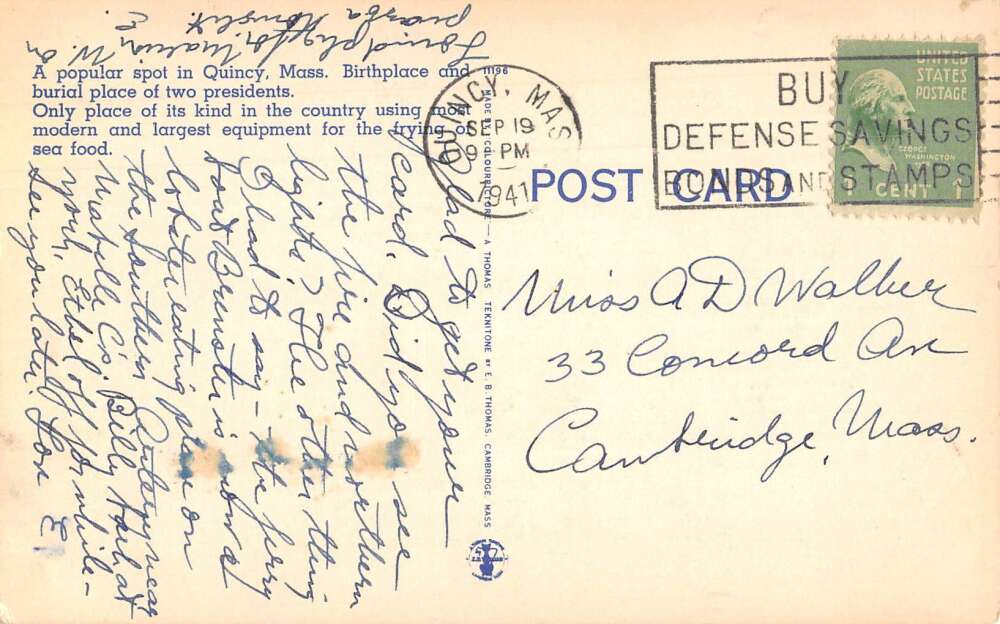 A popular spot in Quincy, Mass. Birthplace and
burial place of two presidents.
Only place of its kind in the country using most
modern and largest equipment for the frying of
sea food.
11196
MADE BY COLOURPICTURE—A THOMAS TEKNITONE BY E. B. THOMAS, CAMBRIDGE, MASS
QUINCY, MASS
SEP 19
9 - PM
1941
BUY
DEFENSE SAVINGS
BONDS AND STAMPS
UNITED
STATES
POSTAGE
GEORGE
WASHINGTON
1 CENT
POST CARD
Miss A D Walker
33 Concord Ave
Cambridge, Mass.
Glad to get your
card. Did you see
the fire and northern
lights? The other thing
I had to say - the ferry
boat Brewster is now a
lobster eating place on
the Southern Artery near
Mabelle Co. Billy had at
work, Ethel off for while -
See you later Love E
Found place for Marion W. on
E.